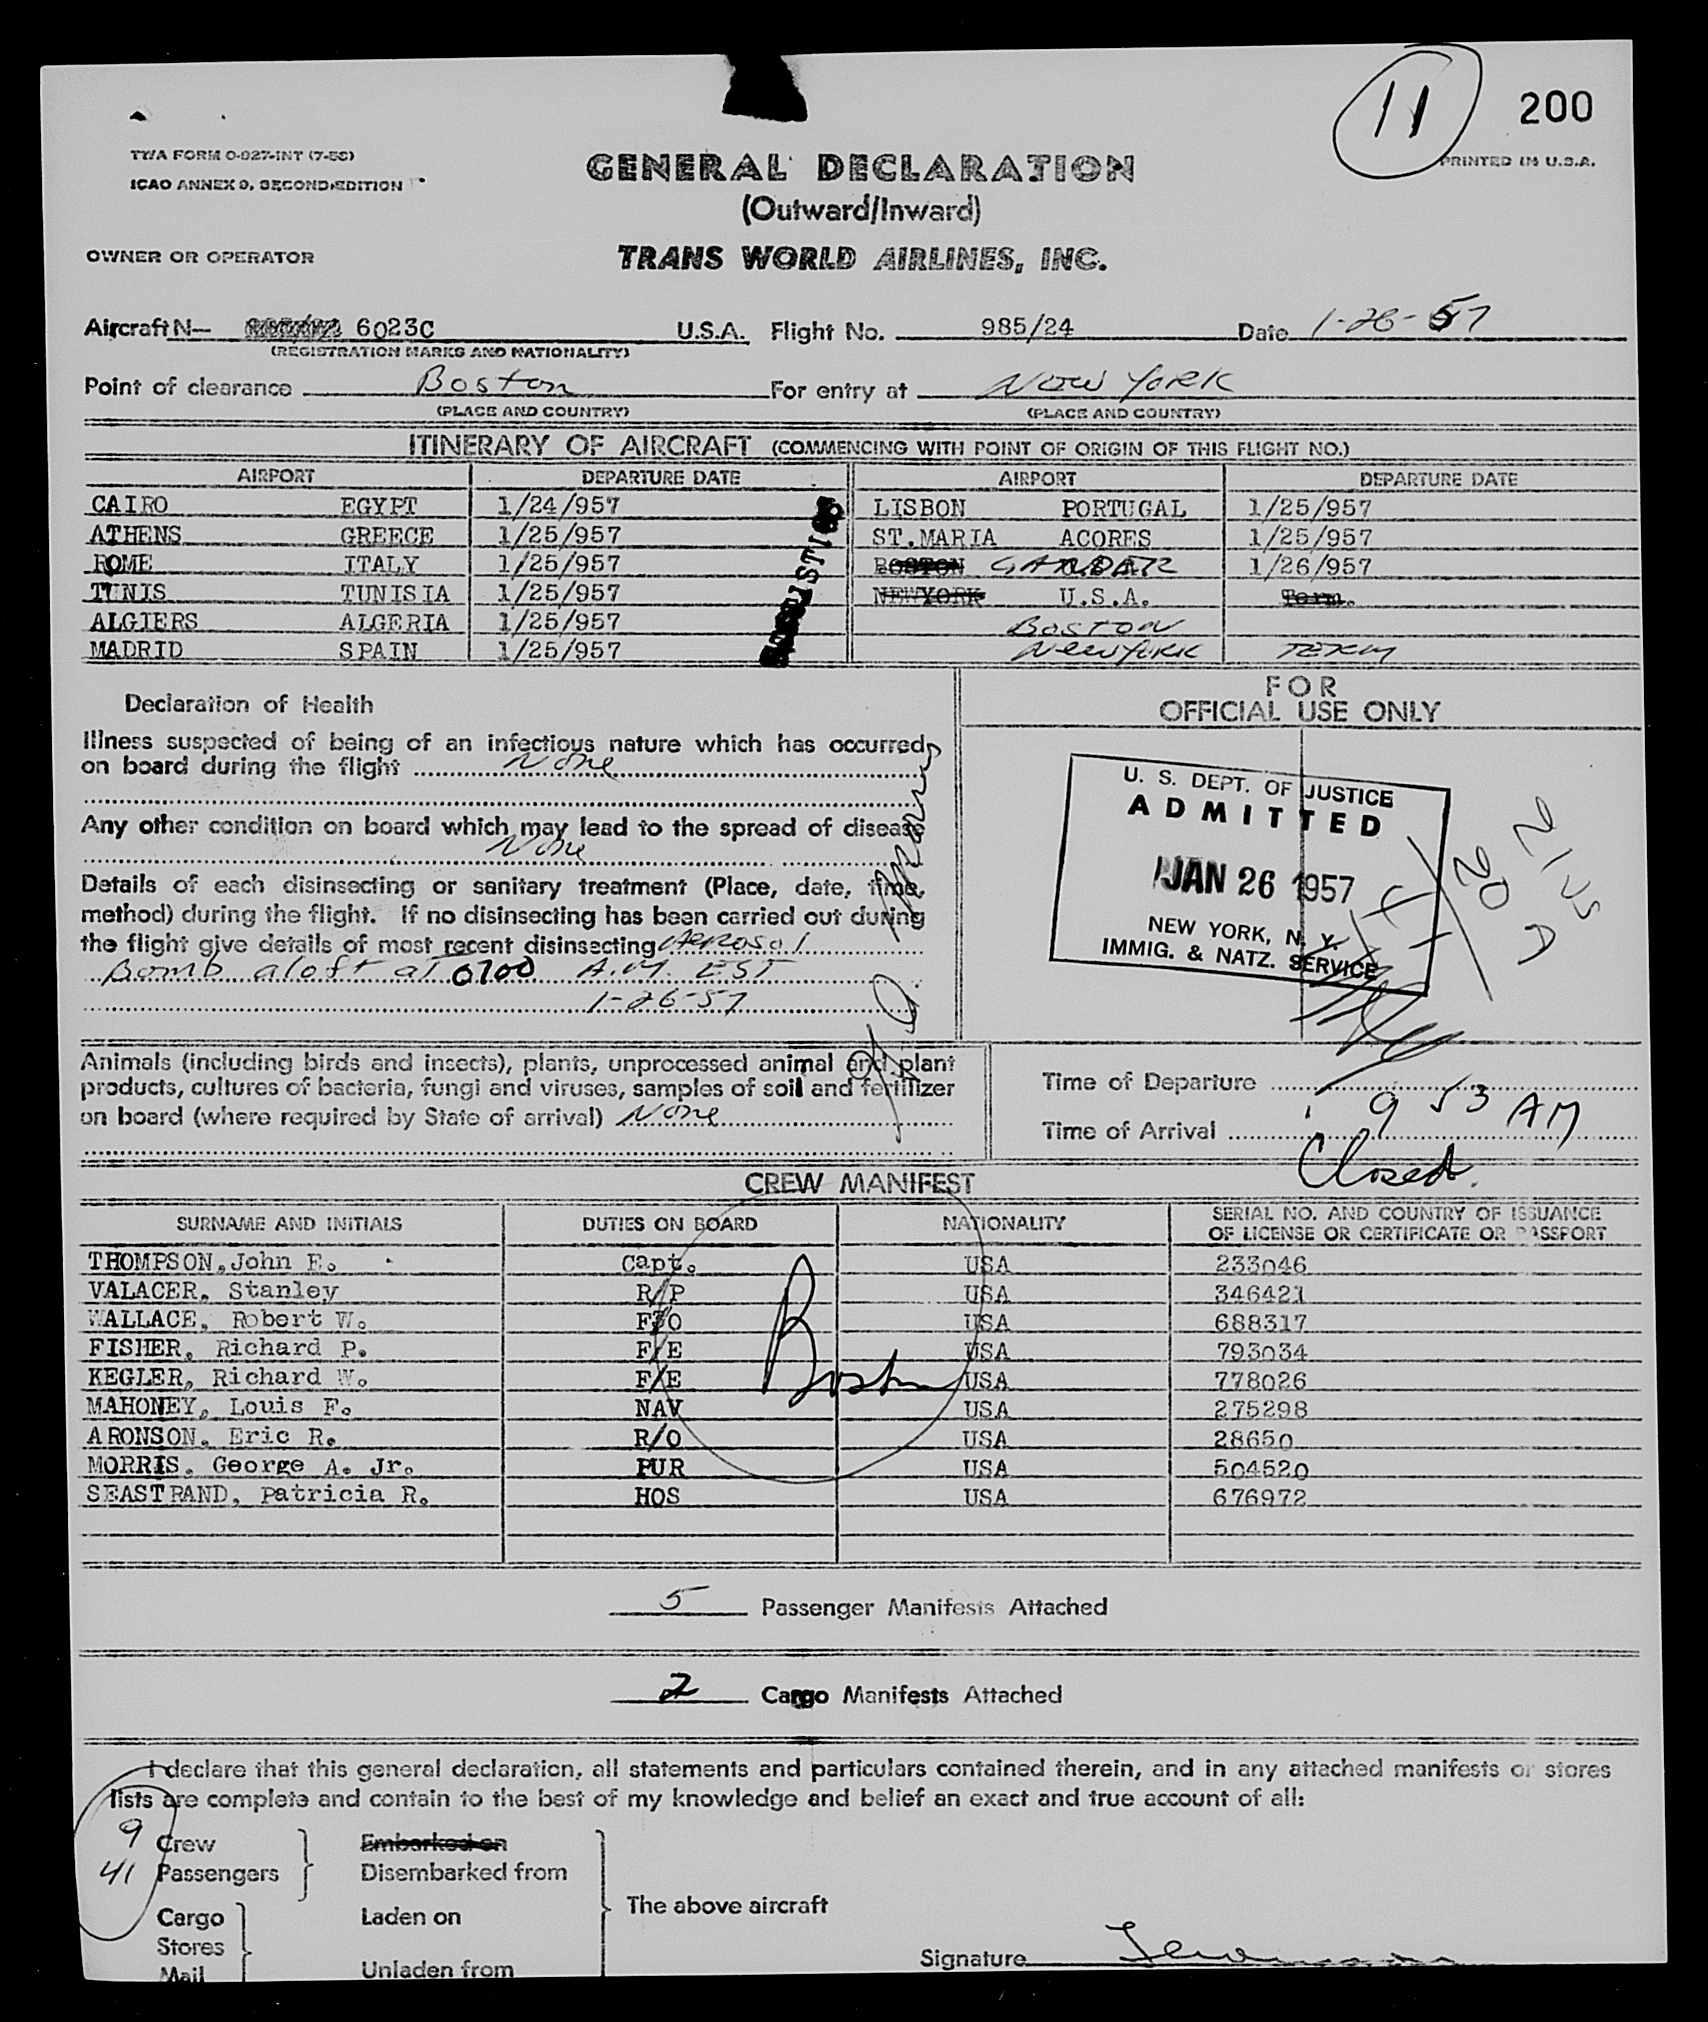 11 200
TWA FORM O-927-INT (7-56) PRINTED IN U.S.A.
ICAO ANNEX 9, SECOND EDITION
GENERAL DECLARATION
(Outward/Inward)
OWNER OR OPERATOR TRANS WORLD AIRLINES, INC.
Aircraft N— 6023C U.S.A. Flight No. 985/24 Date 1-26-57
(REGISTRATION MARKS AND NATIONALITY)
Point of clearance Boston For entry at New York
(PLACE AND COUNTRY) (PLACE AND COUNTRY)
ITINERARY OF AIRCRAFT (COMMENCING WITH POINT OF ORIGIN OF THIS FLIGHT NO.)
AIRPORT DEPARTURE DATE AIRPORT DEPARTURE DATE
CAIRO EGYPT 1/24/957 LISBON PORTUGAL 1/25/957
ATHENS GREECE 1/25/957 ST.MARIA ACORES 1/25/957
ROME ITALY 1/25/957 BOSTON GANDER 1/26/957
TUNIS TUNISIA 1/25/957 NEWYORK U.S.A. Term.
ALGIERS ALGERIA 1/25/957 BOSTON
MADRID SPAIN 1/25/957 New York TERM
STATISTICS
Declaration of Health
Illness suspected of being of an infectious nature which has occurred
on board during the flight None
Any other condition on board which may lead to the spread of disease
None
Details of each disinsecting or sanitary treatment (Place, date, time,
method) during the flight. If no disinsecting has been carried out during
the flight give details of most recent disinsecting Aerosol
Bomb aloft at 0700 A.M. EST
1-26-57
FOR
OFFICIAL USE ONLY
U. S. DEPT. OF JUSTICE
ADMITTED
JAN 26 1957
NEW YORK, N. Y.
IMMIG. & NATZ. SERVICE
21 US
20 A
Animals (including birds and insects), plants, unprocessed animal and plant
products, cultures of bacteria, fungi and viruses, samples of soil and fertilizer
on board (where required by State of arrival) None
Time of Departure
Time of Arrival 9 53 AM
Closed.
CREW MANIFEST
SURNAME AND INITIALS DUTIES ON BOARD NATIONALITY SERIAL NO. AND COUNTRY OF ISSUANCE
OF LICENSE OR CERTIFICATE OR PASSPORT
THOMPSON, John E. Capt. USA 233046
VALACER, Stanley R/P USA 346421
WALLACE, Robert W. F/O USA 688317
FISHER, Richard P. F/E USA 793034
KEGLER, Richard W. F/E USA 778026
MAHONEY, Louis F. NAV USA 275298
ARONSON, Eric R. R/O USA 28650
MORRIS, George A. Jr. PUR USA 504520
SEASTRAND, Patricia R. HOS USA 676972
Boston
5 Passenger Manifests Attached
2 Cargo Manifests Attached
I declare that this general declaration, all statements and particulars contained therein, and in any attached manifests or stores
lists are complete and contain to the best of my knowledge and belief an exact and true account of all:
9 Crew Embarked on
41 Passengers Disembarked from
The above aircraft
Cargo Laden on
Stores
Mail Unladen from
Signature